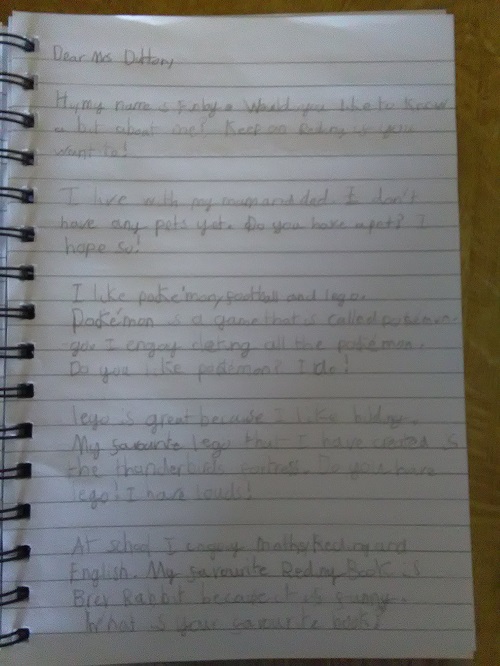 Dear Mrs Duttory
Hi my name is Finlay. Would you like to know
a bit about me? Keep on Reding if you
want to!
I live with my mum and dad. I don't
have any pets yet. Do you have a pet? I
hope so!
I like poké'mon, football and lego.
Poké'mon is a game that is called pokémon
go. I engoy cleting all the poké'mon.
Do you like pokémon? I do!
lego is great because I like bilding.
My favourite lego that I have created is
the thunderbirds fortress. Do you have
lego? I have louds!
At school I engoy maths, Reding and
English. My favourite Reding Book is
Brer Rabbit because it is funny.
What is your favourite book?